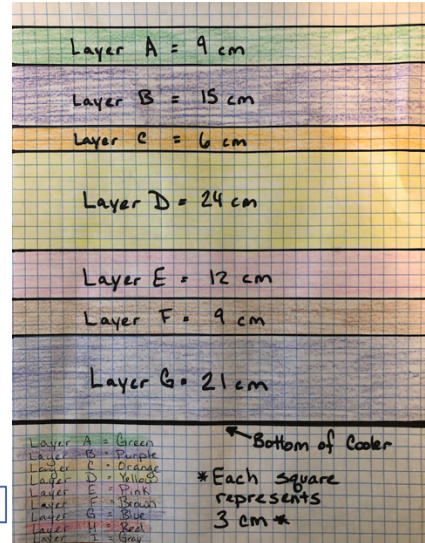 Layer A = 9 cm
Layer B = 15 cm
Layer C = 6 cm
Layer D = 24 cm
Layer E = 12 cm
Layer F = 9 cm
Layer G = 21 cm
Bottom of Cooler
Layer A = Green
Layer B = Purple
Layer C = Orange
Layer D = Yellow
Layer E = Pink
Layer F = Brown
Layer G = Blue
Layer H = Red
Layer I = Gray
*Each square
represents
3 cm *